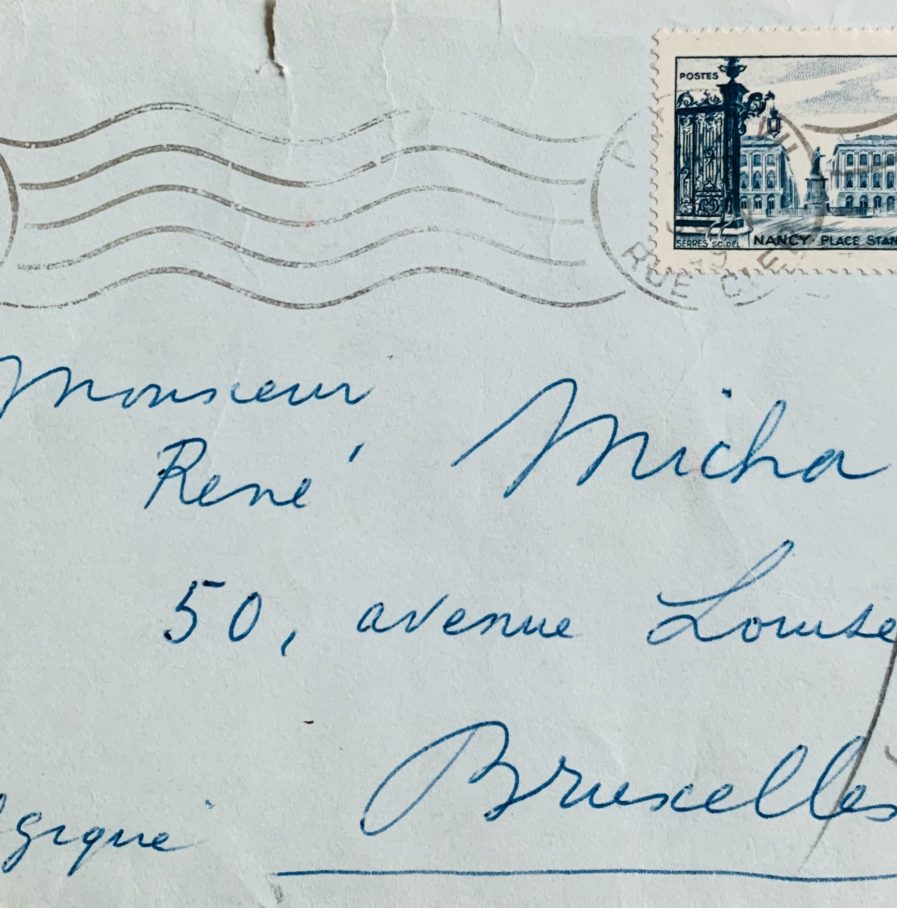 POSTES
SERRES SC. DEL
NANCY PLACE STAN
RUE
Monsieur
René Micha
50, avenue Louise
Bruxelles
lgique